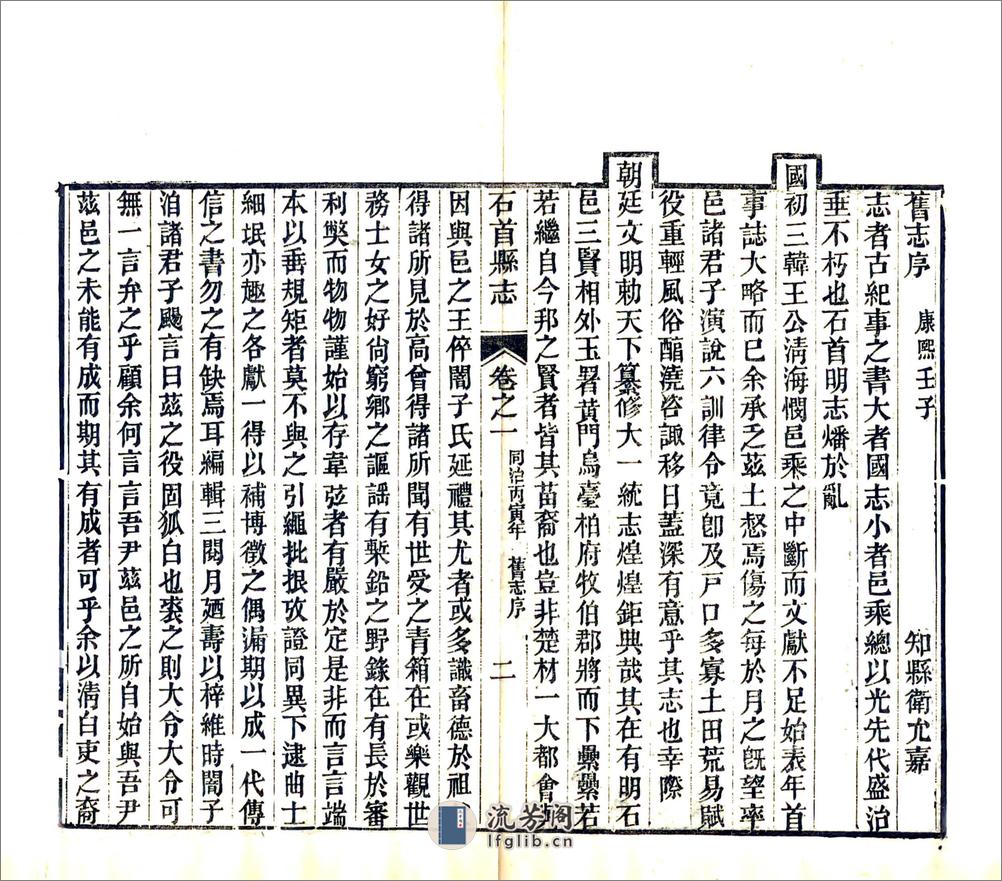 舊志序　康熙壬子　知縣衛允嘉
志者古紀事之書大者國志小者邑乘總以光先代盛治
垂不朽也石首明志燔於亂
國初三韓王公淸海憫邑乘之中斷而文獻不足始表年首
事誌大略而已余承乏茲土惄焉傷之每於月之旣望率
邑諸君子演說六訓律令竟卽及戸口多寡土田荒易賦
役重輕風俗醕澆咨諏移日蓋深有意乎其志也幸際
朝廷文明勅天下纂修大一統志煌煌鉅典哉其在有明石
邑三賢相外玉署黃門烏臺柏府牧伯郡將而下纍纍若
若繼自今邦之賢者皆其苗裔也豈非楚材一大都會
石首縣志　卷之一　同治丙寅年　舊志序　二
因與邑之王倅閣子氏延禮其尤者或多識畜德於祖
得諸所見於高曾得諸所聞有世愛之青箱在或樂觀世
務士女之好尙窮鄉之謳謡有槧鉛之野錄在有長於審
利獘而物物謹始以存韋弦者有嚴於定是非而言言端
本以垂規矩者莫不與之引繩批根攷證同異下逮曲士
細垊亦趣之各獻一得以補博徵之偶漏期以成一代傳
信之書勿之有缺焉耳編輯三閱月廼壽以梓維時閣子
洎諸君子颺言曰茲之役固狐白也裘之則大令大令可
無一言弁之乎顧余何言言吾尹茲邑之所自始與吾尹
茲邑之未能有成而期其有成者可乎余以淸白吏之裔
流芳阁
lfglib.cn